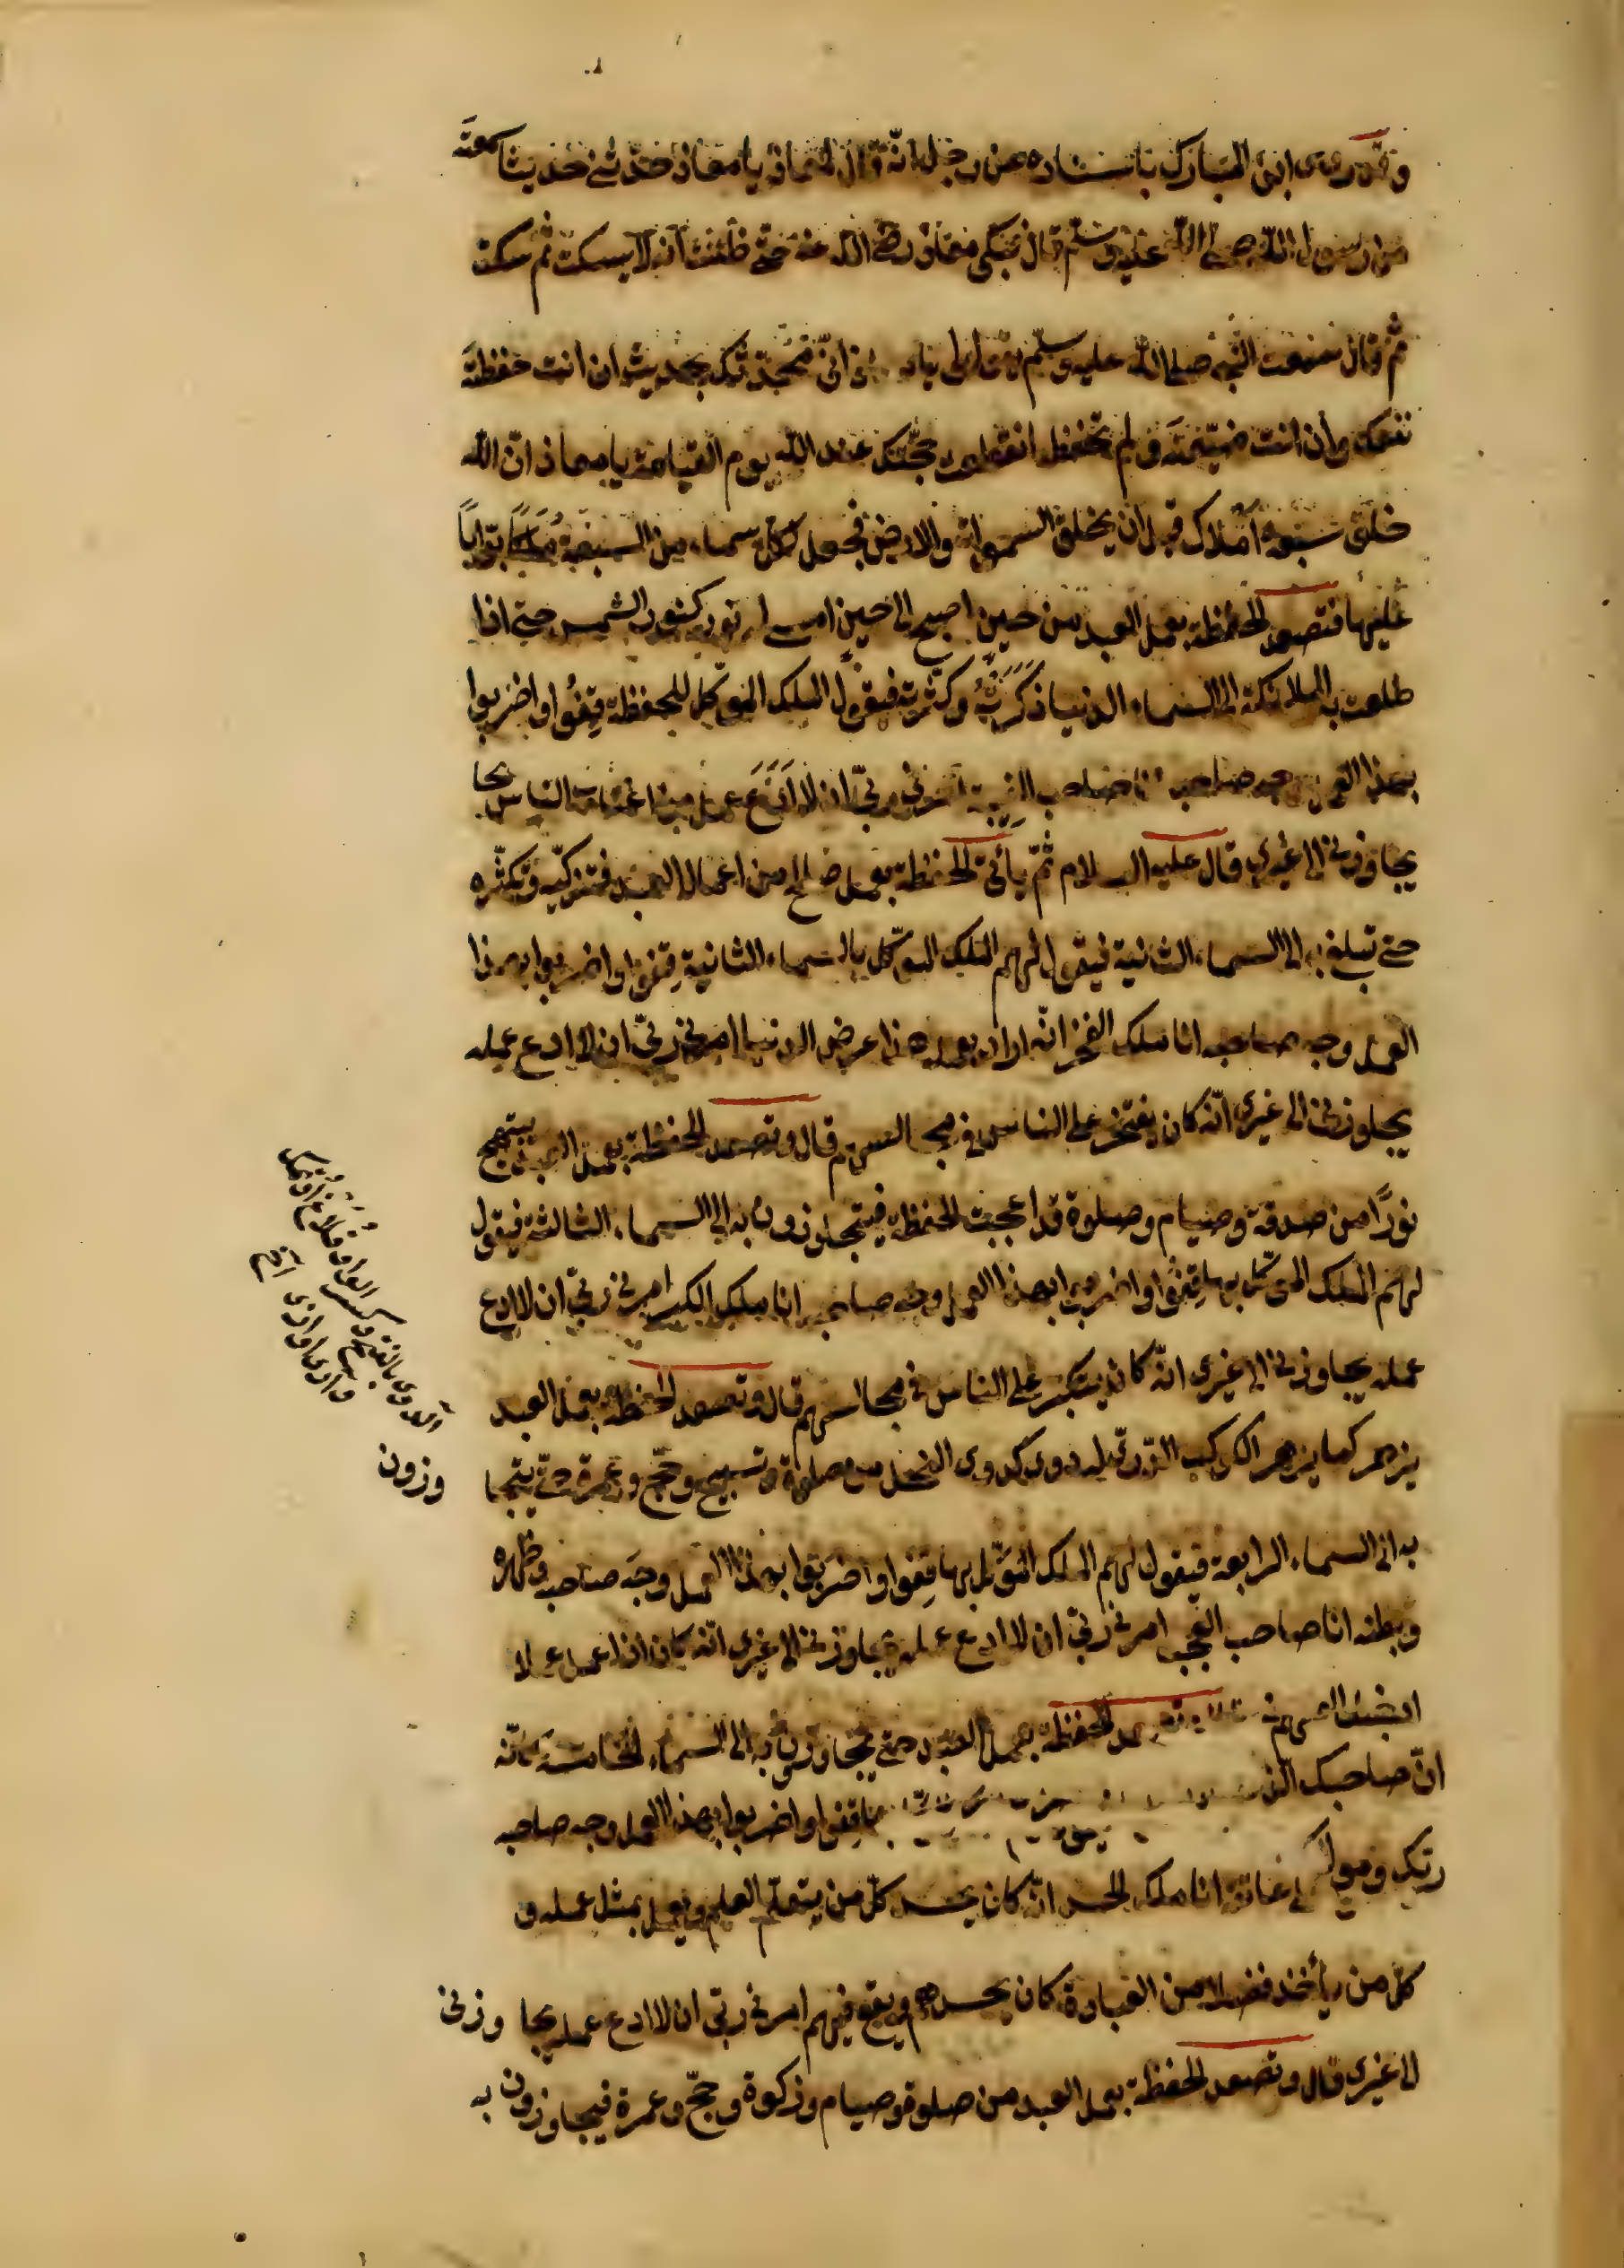 وقد روى ابن المبارك باسناده عن رجل انه قال لمعاذ يا معاذ حدثني حديثا سمعته
من رسول الله صلى الله عليه وسلم قال فبكى معاذ رضي الله عنه حتى ظننت انه لا يسكت ثم سكت
ثم قال سمعت النبي صلى الله عليه وسلم انّي محدّثك بحديث ان انت حفظته
نفعك وان انت ضيّعته ولم تحفظه انقطعت حجّتك عند الله يوم القيامة يا معاذ انّ الله
خلق سبعة املاك قبل ان يخلق السموات والارض فجعل لكل سماء من السبعة مَلَكًا بوّابًا
عليها فتصعد الحفظة بعمل العبد من حين اصبح الى حين امسى له نور كنور الشمس حتى اذا
طلعت به الملائكة الى السماء الدنيا ذَكَرَتْهُ وكثّرته فيقول الملك الموكّل للحفظة قِفُوا واضربوا
بهذا العمل وجه صاحبه انا صاحب الغِيبة امرني ربّي ان لا اَدَعَ عمل من اغتاب الناس يجا
يجاوزني الى غيري قال عليه السلام ثمّ يأتي الحفظة بعمل صالح من اعمال العبد فتزكّيه وتكثّره
حتى تبلغ به الى السماء الثانية فيقول لهم الملك الموكّل بالسماء الثانية قِفوا واضربوا بهذا
العمل وجه صاحبه انا ملك الفخر انّه اراد بعمله هذا عرض الدنيا امرني ربّي ان لا ادع عمله
يجاوزني الى غيري انّه كان يفتخر على الناس في مجالسهم قال وتصعد الحفظة بعمل العبد يبتهج
نورًا من صدقة وصيام وصلوة قد اعجبت الحفظة فيتجاوزون به الى السماء الثالثة فيقول
لهم الملك الموكّل بها قِفُوا واضربوا بهذا العمل وجه صاحبه انا ملك الكبر امرني ربّي ان لا ادع
عمله يجاوزني الى غيري انّه كان يتكبّر على الناس في مجالسهم قال وتصعد الحفظة بعمل العبد
يزهر كما يزهر الكوكب الدّرّيّ له دويّ كدويّ النحل من صلوة وتسبيح وحجّ وعمرة حتّى يتجا
وزون
به الى السماء الرابعة فيقول لهم الملك الموَكّل بها قِفوا واضرَبوا بهذا العمل وجهَ صاحبه وظهره
وبطنه انا صاحب العجب امرني ربّي ان لا ادع عمله يجاوزني الى غيري انّه كان اذا عمل عملا
ادخل العجب فيه قال وتصعد الحفظة بعمل العبد حتى يتجاوزون به الى السماء الخامسة كانّه
بها قفوا واضربوا بهذا العمل وجه صاحبه
انّ صاحبك
ربّك ومولاك
على عاتقه انا ملك الحسد انّه كان يحسد كلّ من يتعلّم العلم ويعمل بمثل عمله و
كلّ من يأخذ فضلا من العبادة كان يحسدهم ويقع فيهم امرني ربّي ان لا ادع عمله يجا وزني
لا غيري قال وتصعد الحفظة بعمل العبد من صلوة وصيام وزكوة وحجّ وعمرة فيجاوزون به